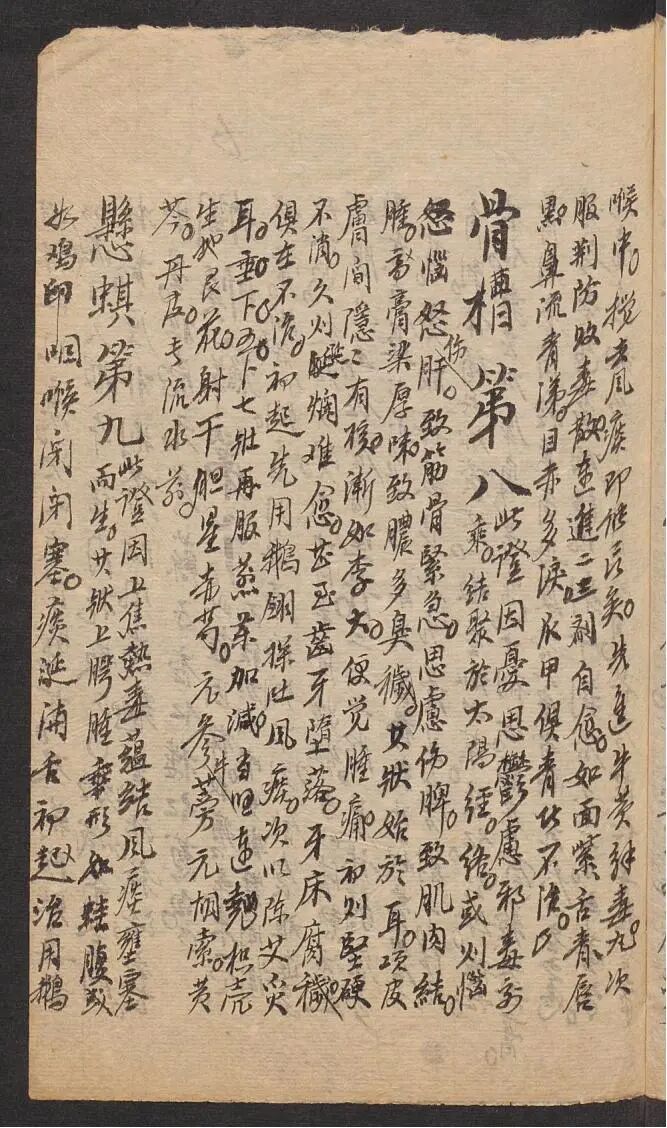 喉中。搅去风痰即能言矣。先進牛黄解毒丸。次
服荆防败毒散連進二三剂自愈。如面紫舌青唇
黑。鼻流青涕。目赤多淚。爪甲俱青此不治。
骨槽第八此證因憂思鬱慮邪毒交
乘。結聚於太陽經。絡或则惱
怒惱怒伤肝。致筋骨緊急。思慮伤脾。致肌肉結
腫。膏粱厚味致膿多臭穢。其狀始於耳。項皮
膚间隱隱有核。漸如李大。便觉腫痛。初则堅硬
不消。久则難愈。甚至齒牙墮落。牙床腐穢。
俱在不治。初起先用鵝翎探吐风痰。次以陈艾灸
耳。垂下五下七壯再服煎茶加減。連翘枳壳
生地艮花。射干胆星赤芍。元参牛蒡元胡索。黄
芩。丹皮。長流水煎。
懸蜞第九此證因上焦熱毒蕴結风痰壅塞
而生。其狀上腭腫垂形如蛙腹或
如鸡卵咽喉闭塞。痰涎满舌初起治用鵝